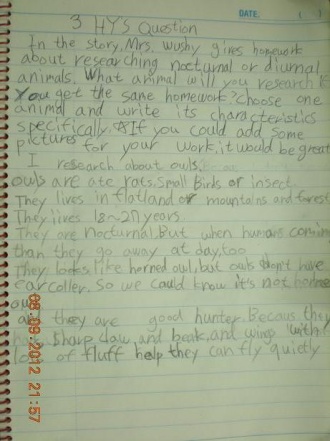 DATE.
3 HY'S Question
In the story, Mrs. Wushy gives homework
about researching nocturnal or diurnal
animals. What animal will you research if
you get the same homework? choose one
animal and write its characteristics
specifically. If you could add some
pictures for your work, it would be great
I research about owls.
owls are ate rats. small birds or insect.
They lives in flatland or mountains and forest
They lives 18~27 years.
They are nocturnal. But when humans coming
than they go away at day, too
They looks like horned owl, but owls don't have
ear coller. So we could know it's not horned
ow
and they are good hunter. Becaus they
have sharp claw and beak, and wings with
lots of fluff help they can fly quietly
08.09.2012 21:57